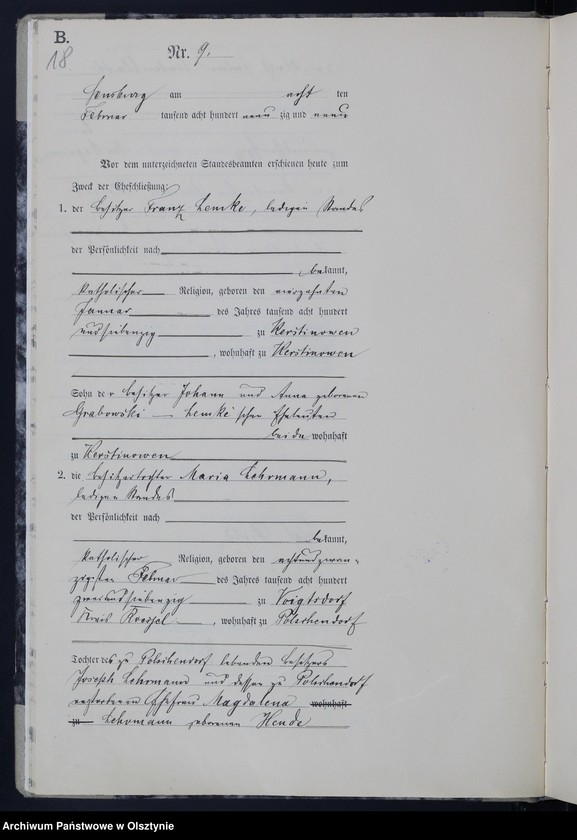 B.
18
Nr. 9.
Sensburg am acht ten
Februar tausend acht hundert neun zig und neun
Vor dem unterzeichneten Standesbeamten erschienen heute zum
Zweck der Eheschließung:
1. der Besitzer Franz Lemke, ledigen Standes
der Persönlichkeit nach
bekannt,
katholischer Religion, geboren den vierzehnten
Januar des Jahres tausend acht hundert
undsiebenzig zu Kerstinowen
, wohnhaft zu Kerstinowen
Sohn der Besitzer Johann und Anna geborenen
Grabowski - Lemke'schen Eheleuten
beide wohnhaft
zu Kerstinowen
2. die Besitzertochter Maria Lehrmann,
ledigen Standes
der Persönlichkeit nach
bekannt,
katholischer Religion, geboren den achtundzwan-
zigsten Februar des Jahres tausend acht hundert
zweiundsiebenzig zu Voigtsdorf
Kreis Roessel, wohnhaft zu Polschendorf
Tochter des zu Polschendorf lebenden Besitzers
Joseph Lehrmann und dessen zu Polschendorf
verstorbenen Ehefrau Magdalena wohnhaft
zu Lehrmann geborenen Hende
Archiwum Państwowe w Olsztynie